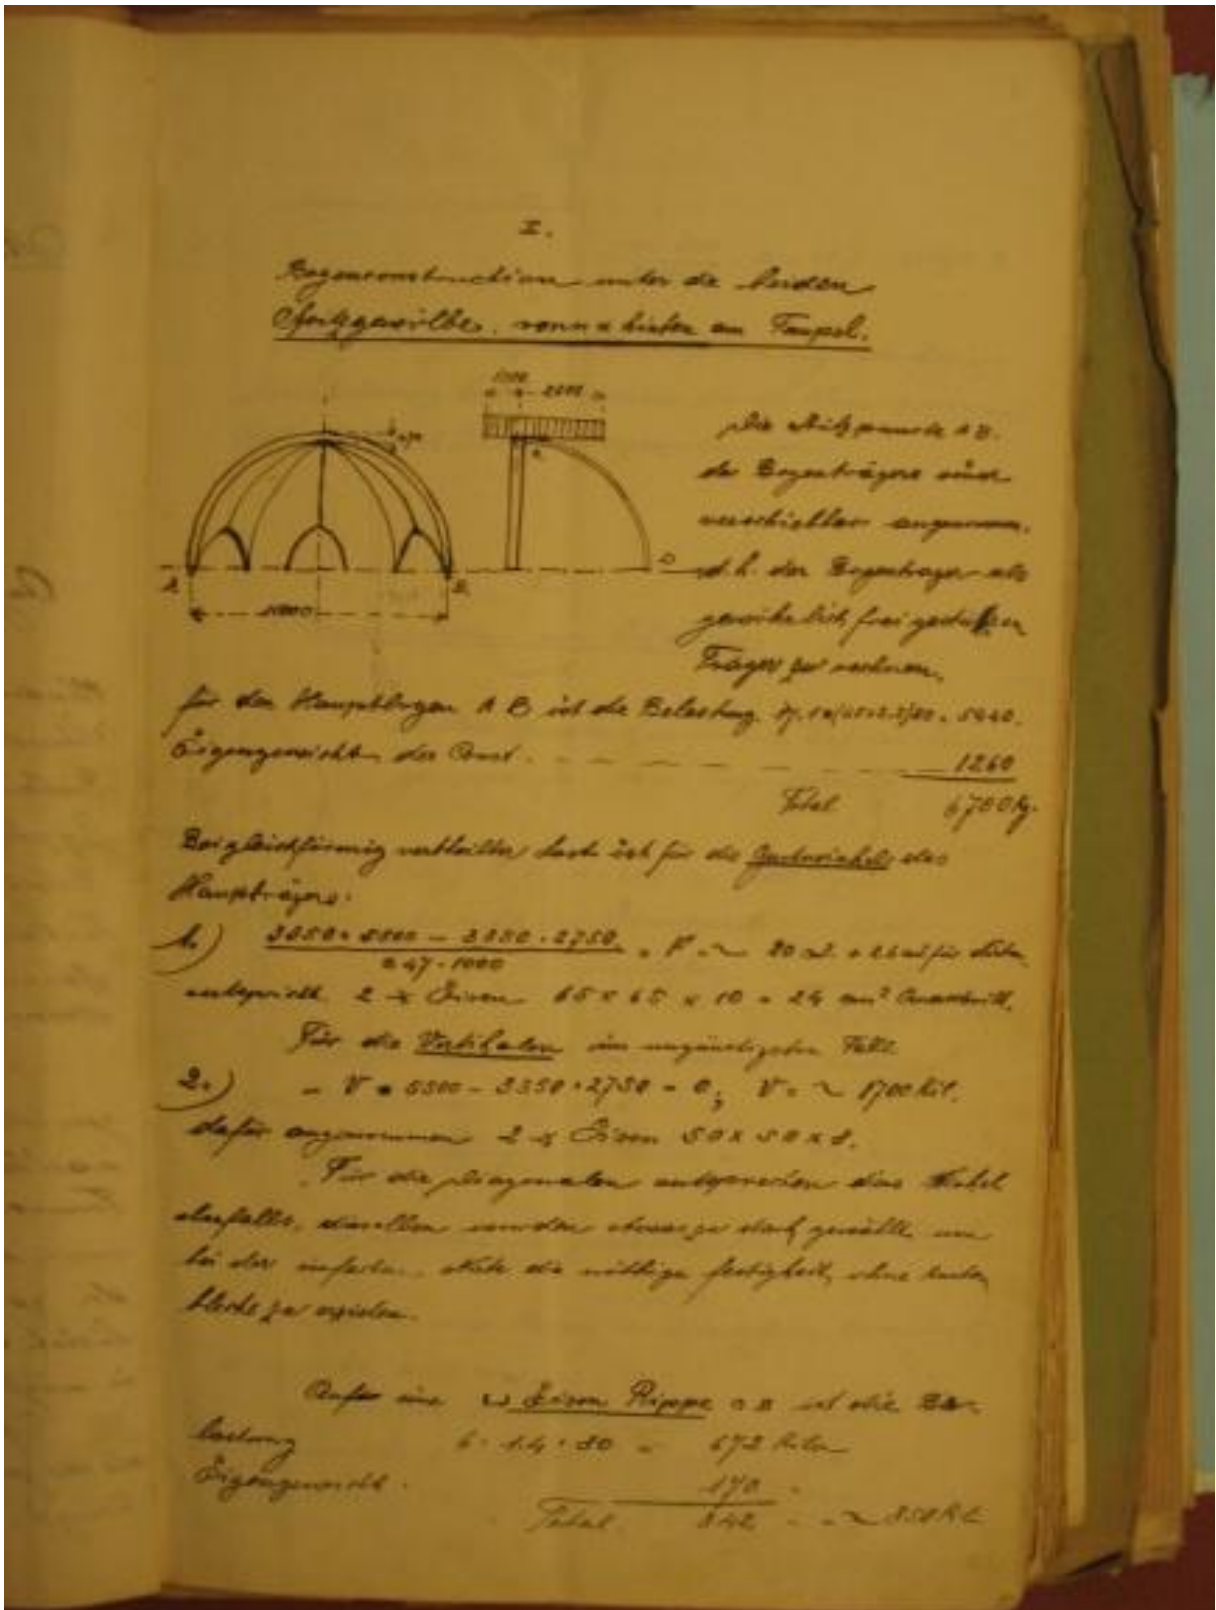 I.
Bogenconstruction unter die beiden
gewölbe, vorn u hinten am Tempel.
1000
2000
A
B
11000
Die Stützpunkte A B.
des Bogenträgers sind
verschiebbar angenomm.
d. h. der Bogenträger als
gewöhnlich frei gestützten
Träger zu rechnen.
für den Hauptbogen A B ist die Belastung 5440.
Eigengewicht der Const. 1260
Total 6700 Kg.
Bei gleichförmig vertheilter Last ist für die Gurtwinkel des
Hauptträgers.
1.) 3350 × 5500 — 3350 · 2750
0.47 · 1000
= F = ~ 20
entspricht 2 Eisen 65 × 65 × 10 = 24 cm² Querschnitt.
Für die Vertikalen im ungünstigsten Fall
2.) — V • 5500 — 3350 · 2750 = 0; V = ~ 1700 Kil.
dafür angenommen 2 Eisen 50 × 50 × 8.
Für die Diagonalen entsprechen dies Winkel
ebenfalls, dieselben wurden etwas zu stark gewählt um
bei der die nöthige festigkeit, ohne Knoten
bleche zu erzielen.
eine Eisen Rippe ist die Be-
lastung 6 · 1.4 · 80 = 672 Kilo
Eigengewicht. 170
Total 842 = ~ 850 Kil